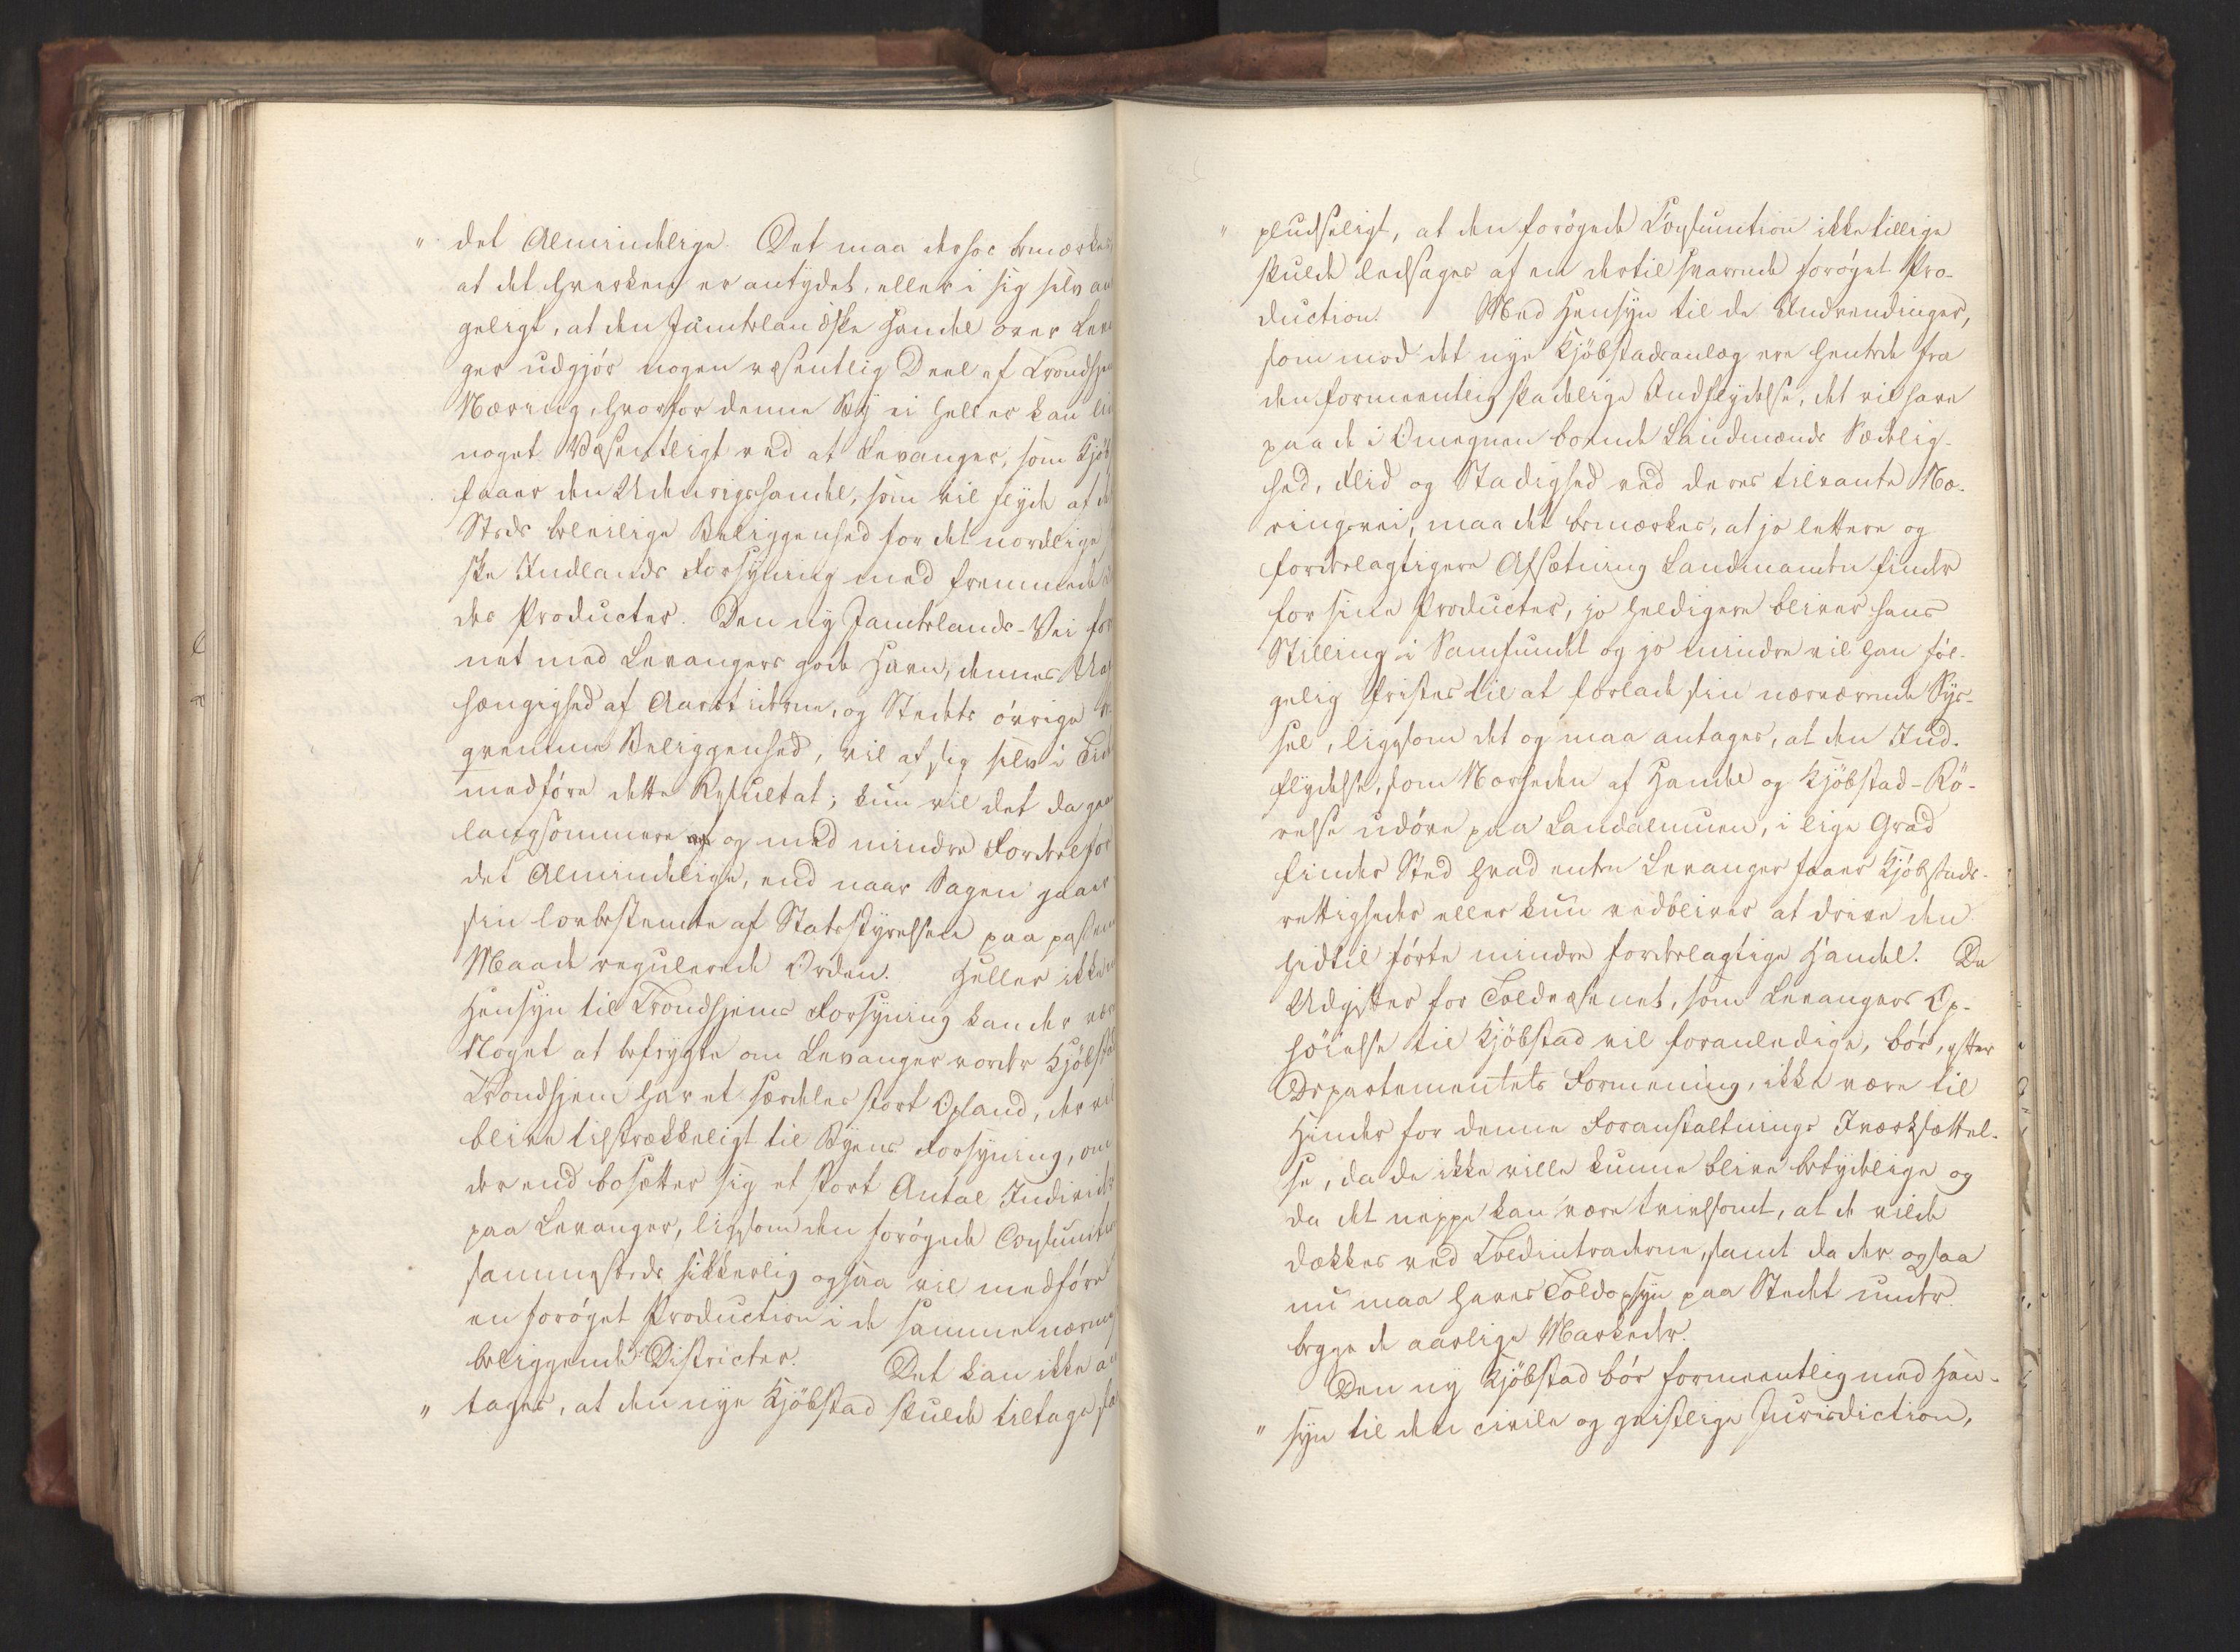 " det Almindelige. Det maa derhos bemærkes
at det hverken er antydet, eller i sig selv an
geligt, at den Jämtelandske Handel over Leva
ger udgjör nogen væsentlig Deel af Trondhje
Næring, hvorfor denne By ei heller kan li
noget Væsentligt ved at Levanger, som Kjöb
faaer den Udenrigshandel, som vil flyde af de
Steds beleilige Beliggenhed for det nordlige
ske Indlands Forsyning med fremmede
des Producter. Den ny Jamtelands-Vei for
net med Levangers gode Havn, dennes Uaf
hængighed af Aarstiderne, og Stedets övrige
qvemme Beliggenhed, vil af sig selv i Tid
medföre dette Resultat; kun vil det da gaae
langsommere og med mindre Fordeel for
det Almindelige, end naar Sagen gaaer
sin lovbestemte af Statsstyrelsen paa passen
Maade regulerede Orden. Heller ikke
Hensyn til Trondhjems Forsyning kan der være
Noget at befrygte om Levanger vorder Kjöbsta
Trondhjem har et særdeles stort Opland, der vil
blive tilstrækkeligt til Byens Forsyning, om
der end bosætter sig et stort Antal Individer
paa Levanger, ligesom den forögede Consumtion
sammesteds sikkerlig ogsaa vil medföre
en foröget Production i de samme nærmest
beliggende Districter. Det kan ikke an
" tages, at den nye Kjöbstad skulde tiltage saa
" pludseligt, at den forögede Consumtion ikke tillige
skulde ledsages af en dertil svarende foröget Pro-
duction. Med Hensyn til de Indvendinger,
som mod det nye Kjöbstadsanlæg ere hentede fra
den formeentlig skadelige Indflydelse, det vil have
paa de i Omegnen boende Landmænds Sædelig-
hed, Flid og Stadighed ved deres tilvante Næ-
ringsvei, maa det bemærkes, at jo lettere og
fordeelagtigere Afsætning Landmanden finder
for sine Producter, jo heldigere bliver hans
Stilling i Samfundet og jo mindre vil han föl-
gelig fristes til at forlade sin nærværende Sys-
sel, ligesom det og maa antages, at den Ind-
flydelse, som Nærheden af Handel og Kjöbstad-Rö-
relse udöve paa Landalmuen, i lige Grad
finder Sted hvad enten Levanger faaer Kjöbstads-
rettigheder eller kun vedbliver at drive den
hidtil förte mindre fordeelagtige Handel. De
Udgifter for Toldvæsenet, som Levangers Op-
höielse til Kjöbstad vil foranledige, bör, efter
Departementets Formening, ikke være til
Hinder for denne Foranstaltnings Iværksættel-
se, da de ikke ville kunne blive betydelige og
da det neppe kan være tvivlsomt, at de vilde
dækkes ved Toldintraderne, samt da der ogsaa
nu maa haves Toldopsyn paa Stedet under
begge de aarlige Markeder.
Den ny Kjöbstad bör formeentlig med Hen-
" syn til den civile og geistlige Jurisdiction,